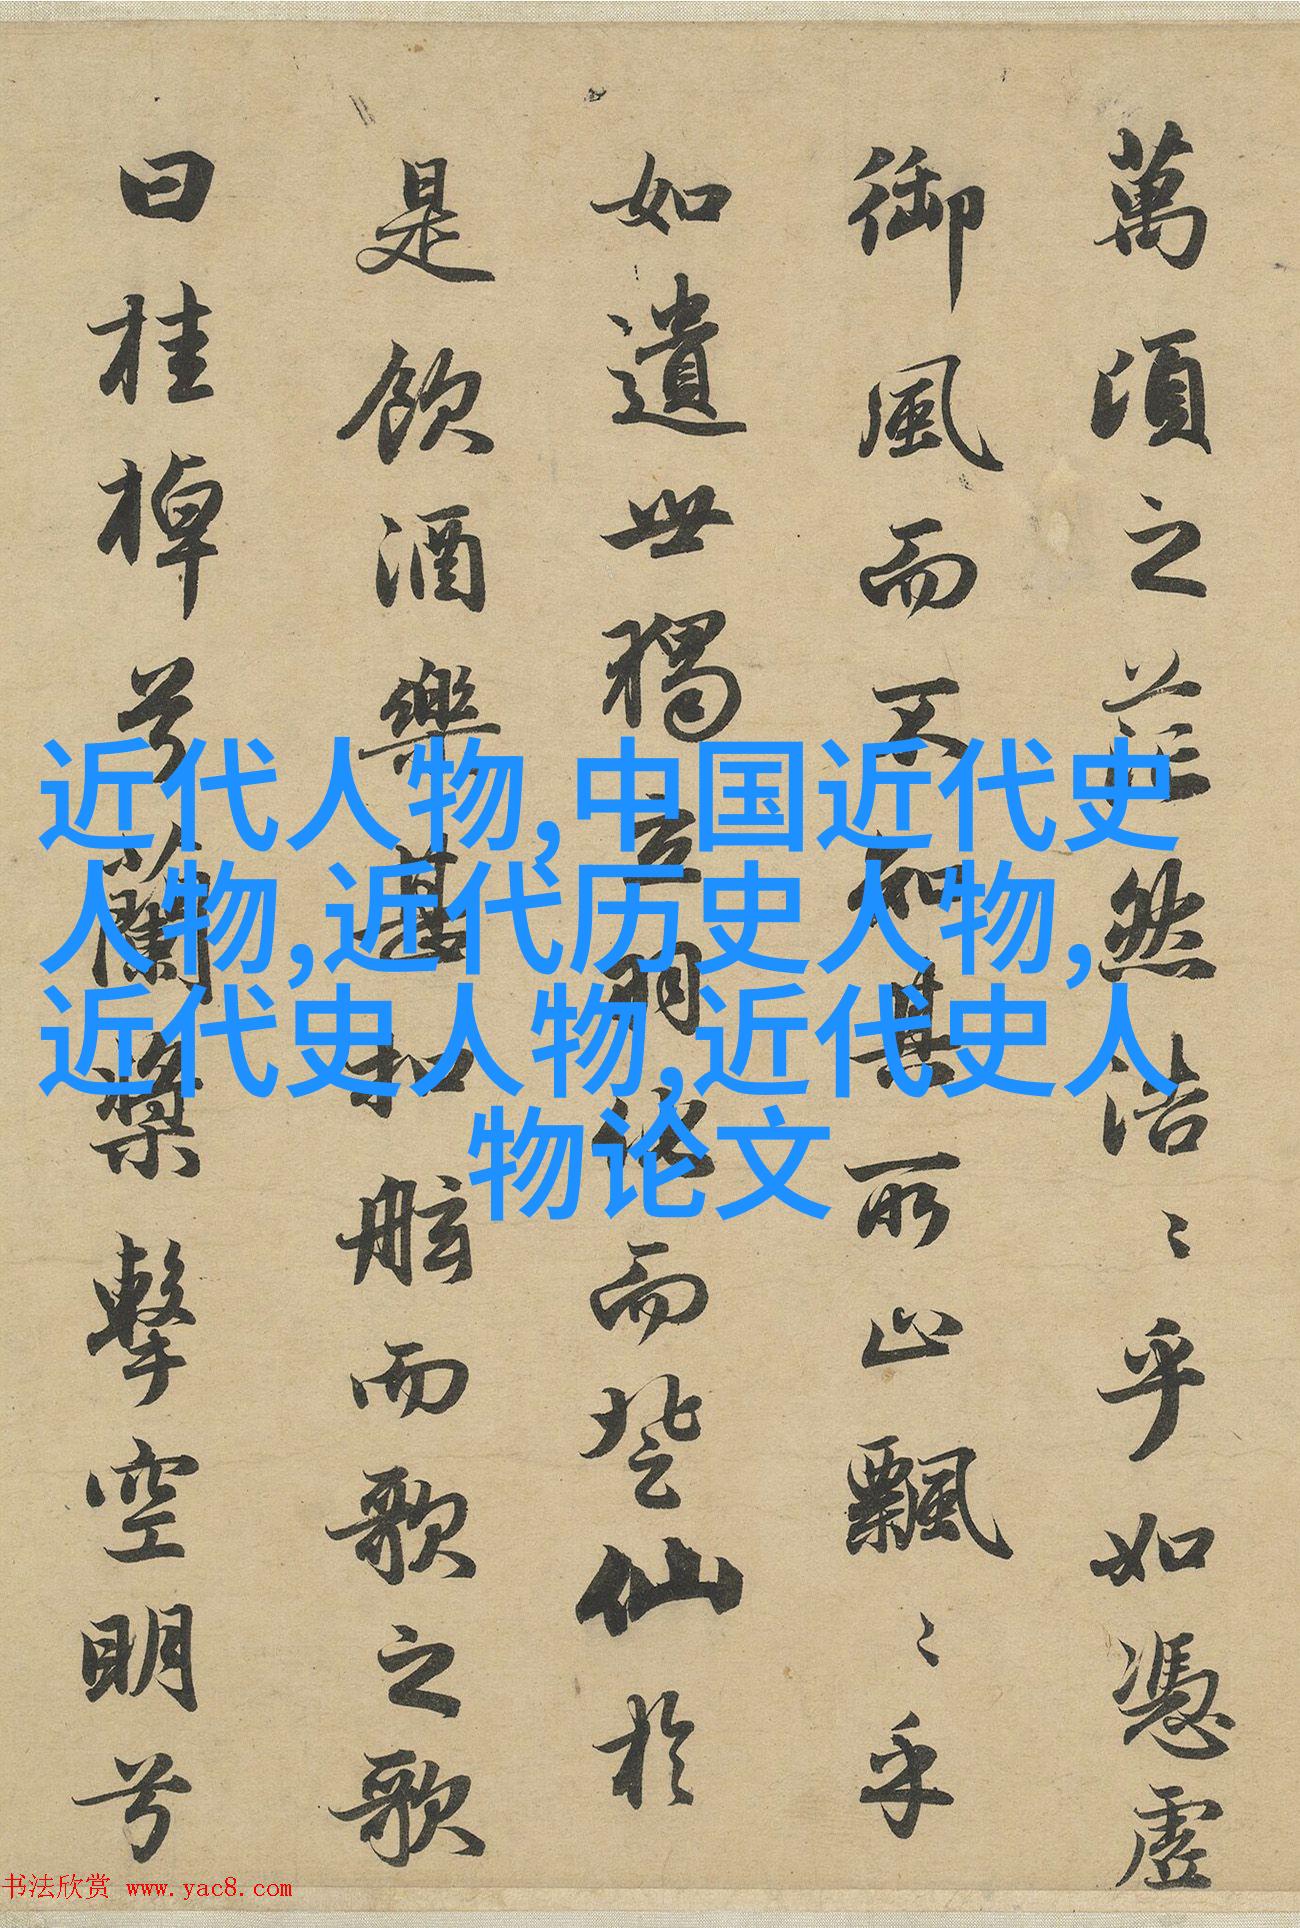 萬頃之茫然浩〻乎如憑虛
御風而不知其所止飄〻乎
如遺世獨立羽化而登仙於
是飲酒樂甚扣舷而歌之歌
曰桂棹兮蘭槳擊空明兮
近代人物,中国近代史
人物,近代历史人物,
近代史人物,近代史人
物论文
书法欣赏 www.yac8.com